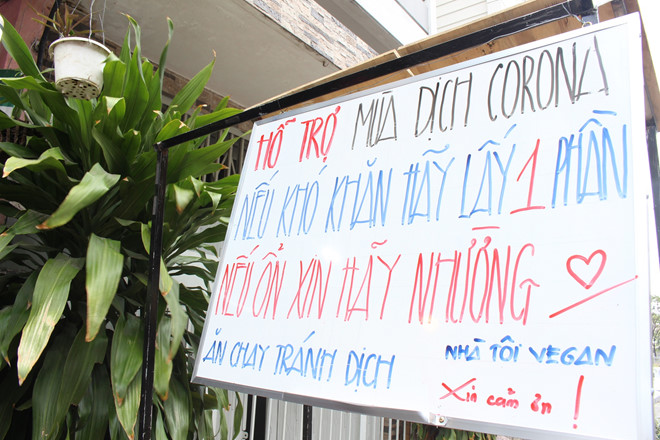 HỖ TRỢ MÙA DỊCH CORONA
NẾU KHÓ KHĂN HÃY LẤY 1 PHẦN
NẾU ỔN XIN HÃY NHƯỜNG
ĂN CHAY TRÁNH DỊCH
NHÀ TÔI VEGAN
Xin cảm ơn!